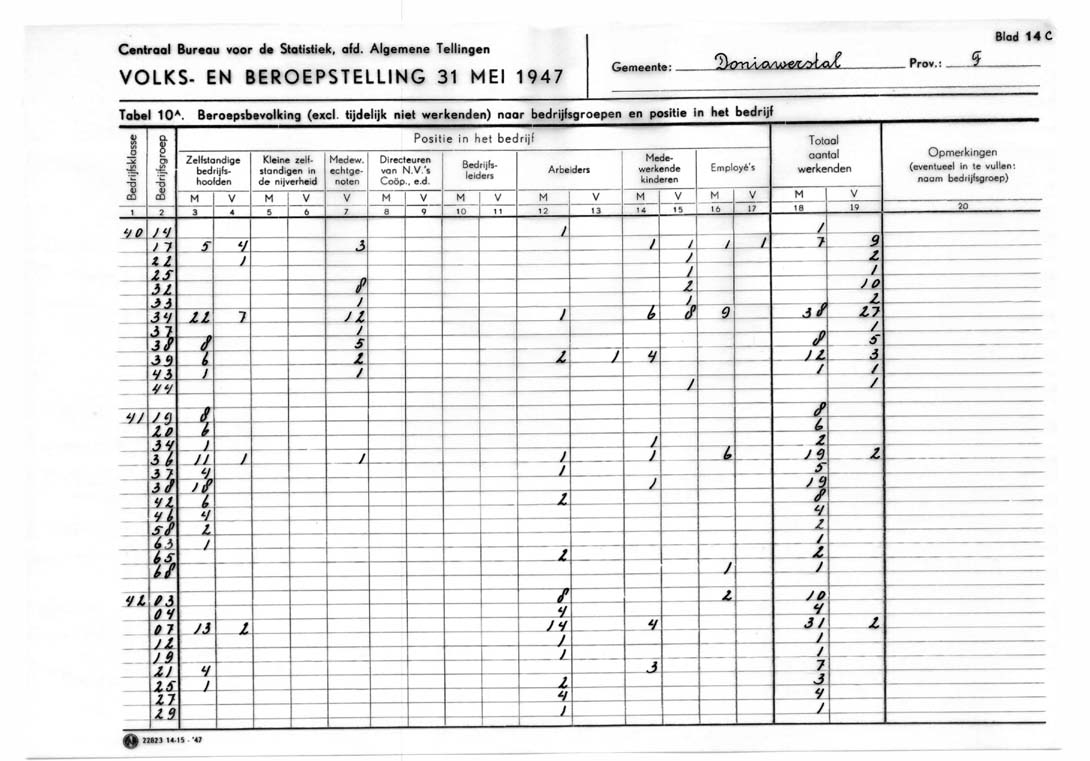 Blad 14 C
Centraal Bureau voor de Statistiek, afd. Algemene Tellingen
VOLKS- EN BEROEPSTELLING 31 MEI 1947
Gemeente: Doniawerstal Prov.: F
Tabel 10A. Beroepsbevolking (excl. tijdelijk niet werkenden) naar bedrijfsgroepen en positie in het bedrijf
Bedrijfsklasse Bedrijfsgroep Positie in het bedrijf Totaal aantal werkenden Opmerkingen (eventueel in te vullen: naam bedrijfsgroep)
Zelfstandige bedrijfshoofden Kleine zelfstandigen in de nijverheid Medew. echtgenoten Directeuren van N.V.'s Coöp., e.d. Bedrijfsleiders Arbeiders Medewerkende kinderen Employé's
M V M V V M V M V M V M V M V M V
1 2 3 4 5 6 7 8 9 10 11 12 13 14 15 16 17 18 19 20
40 14 1 1
17 5 4 3 1 1 1 1 7 9
22 1 1 2
25 1 1
32 8 2 10
33 1 1 2
34 22 7 12 1 6 8 9 38 27
37 1 1
38 8 5 8 5
39 6 2 2 1 4 12 3
43 1 1 1 1
44 1 1
41 19 8 8
20 6 6
34 1 1 2
36 11 1 1 1 1 6 19 2
37 4 1 5
38 18 1 19
42 6 2 8
46 4 4
58 2 2
63 1 1
65 2 2
68 1 1
42 03 8 2 10
04 4 4
07 13 2 14 4 31 2
12 1 1
19 1 1
21 4 3 7
25 1 2 3
27 4 4
29 1 1
22823 14-15 - '47